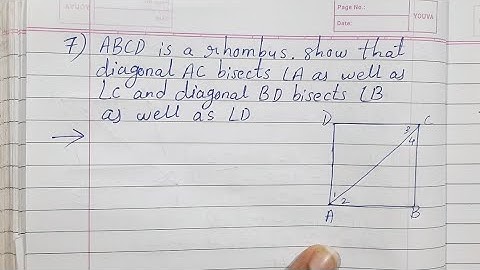 Page No.:
Date:
YOUVA
7) ABCD is a rhombus. show that
diagonal AC bisects LA as well as
LC and diagonal BD bisects LB
as well as LD
D
C
3
4
1
2
A
B